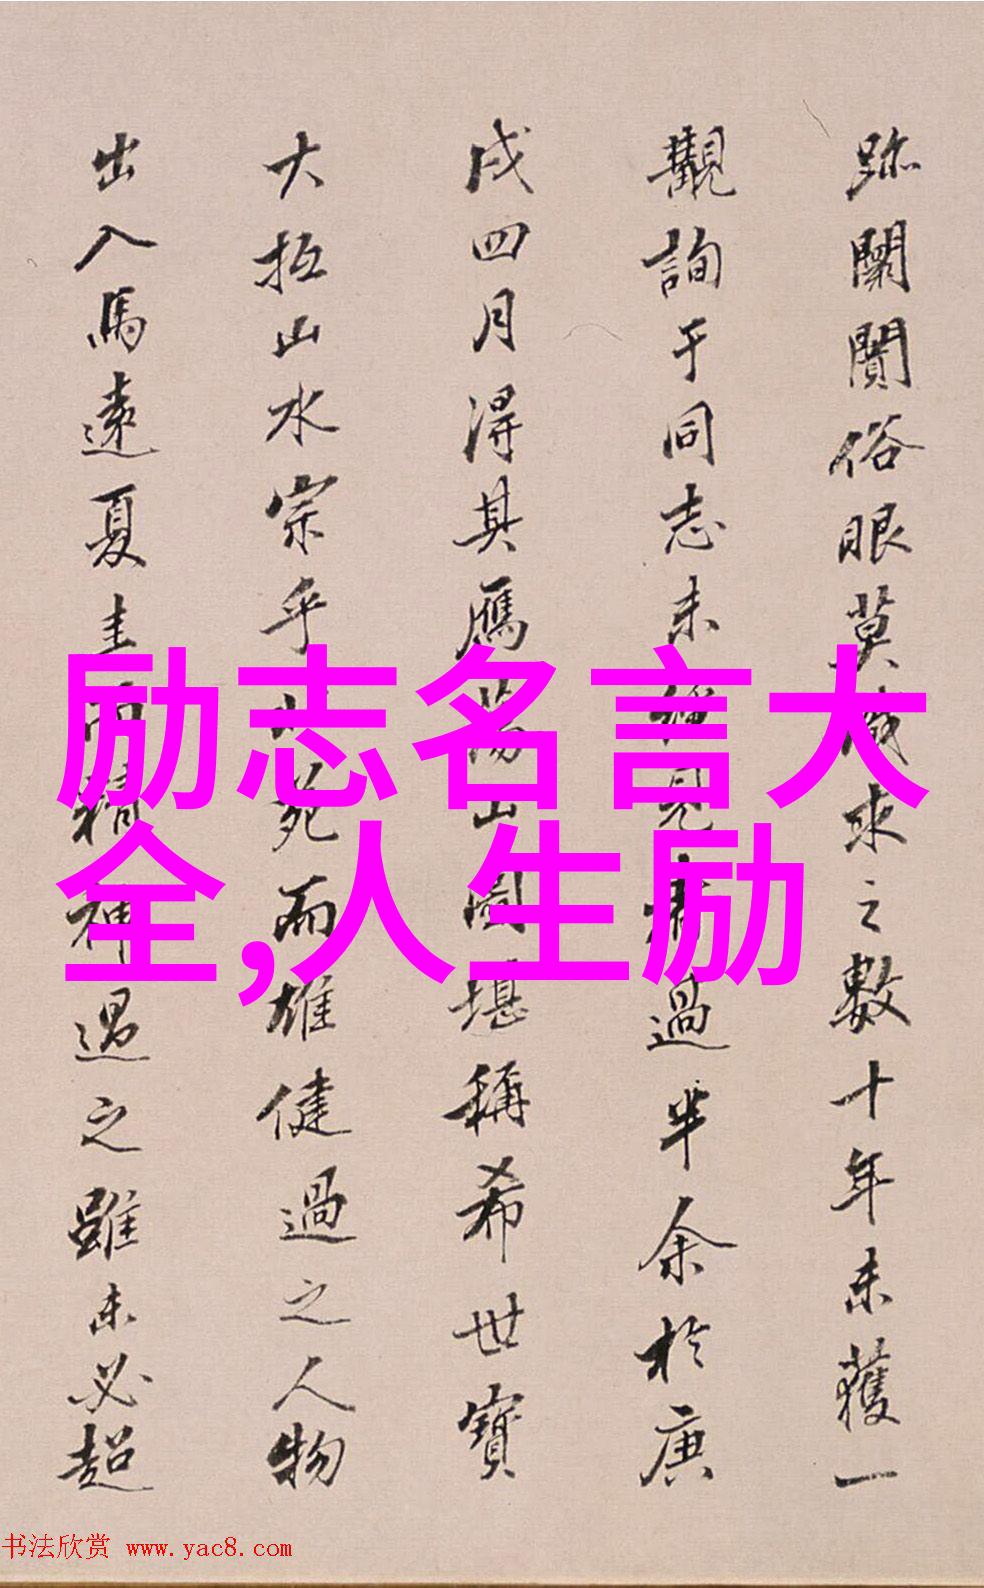 跡闤闠俗眼莫求之數十年未獲一
觀詢于同志未見者過半余於庚
戌四月得其鴈蕩山圖堪稱希世寶
大抵山水宗乎北苑而雄健過之人物
出入馬遠夏圭而精神過之雖未必超
励志名言大
全,人生励
书法欣赏 www.yac8.com